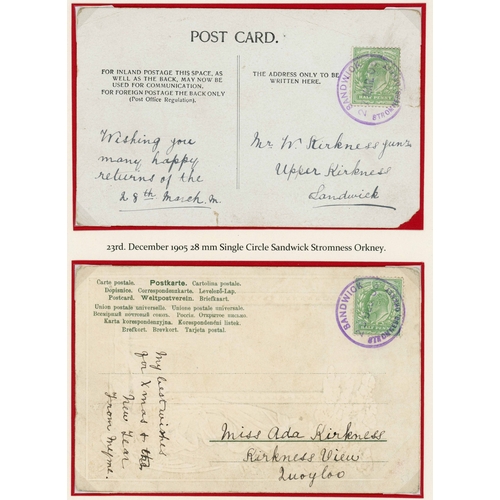 POST CARD.
FOR INLAND POSTAGE THIS SPACE, AS
WELL AS THE BACK, MAY NOW BE
USED FOR COMMUNICATION.
FOR FOREIGN POSTAGE THE BACK ONLY
(Post Office Regulation).
THE ADDRESS ONLY TO BE
WRITTEN HERE.
SANDWICK
STROMNESS
HALF PENNY
Wishing you
many happy
returns of the
28th March. M.
Mr W Kirkness junr
Upper Kirkness
Sandwick
23rd. December 1905 28 mm Single Circle Sandwick Stromness Orkney.
Carte postale. Postkarte. Cartolina postale.
Dopisnice. Correspondenzkarte. Levelező-Lap.
Postcard. Weltpostverein. Briefkaart.
Union postale universelle. Unione postale universale.
Всемірный почтовый союзъ. Россія. Открытое письмо.
Karta korespondencyjna. Korespondenční lístek.
Brefkort. Brevkort. Tarjeta postal.
SANDWICK
STROMNESS
HALF PENNY
My best wishes
for Xmas & the
New Year.
From
Miss Ada Kirkness
Kirkness View
Quoyloo